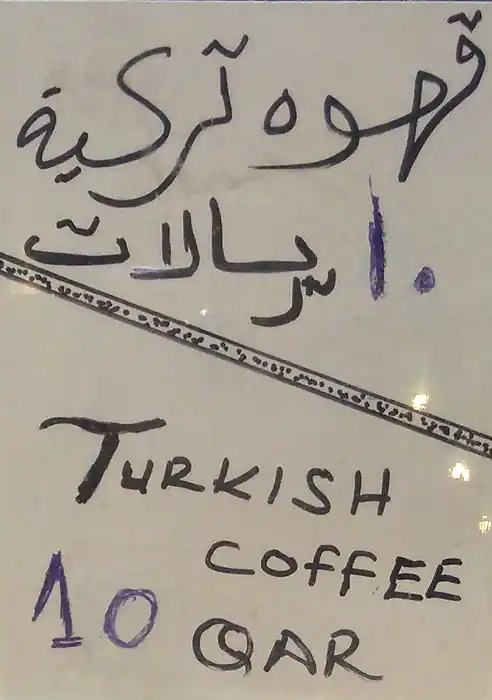 قهوه تركية
١٠ ريالات
TURKISH
COFFEE
10 QAR